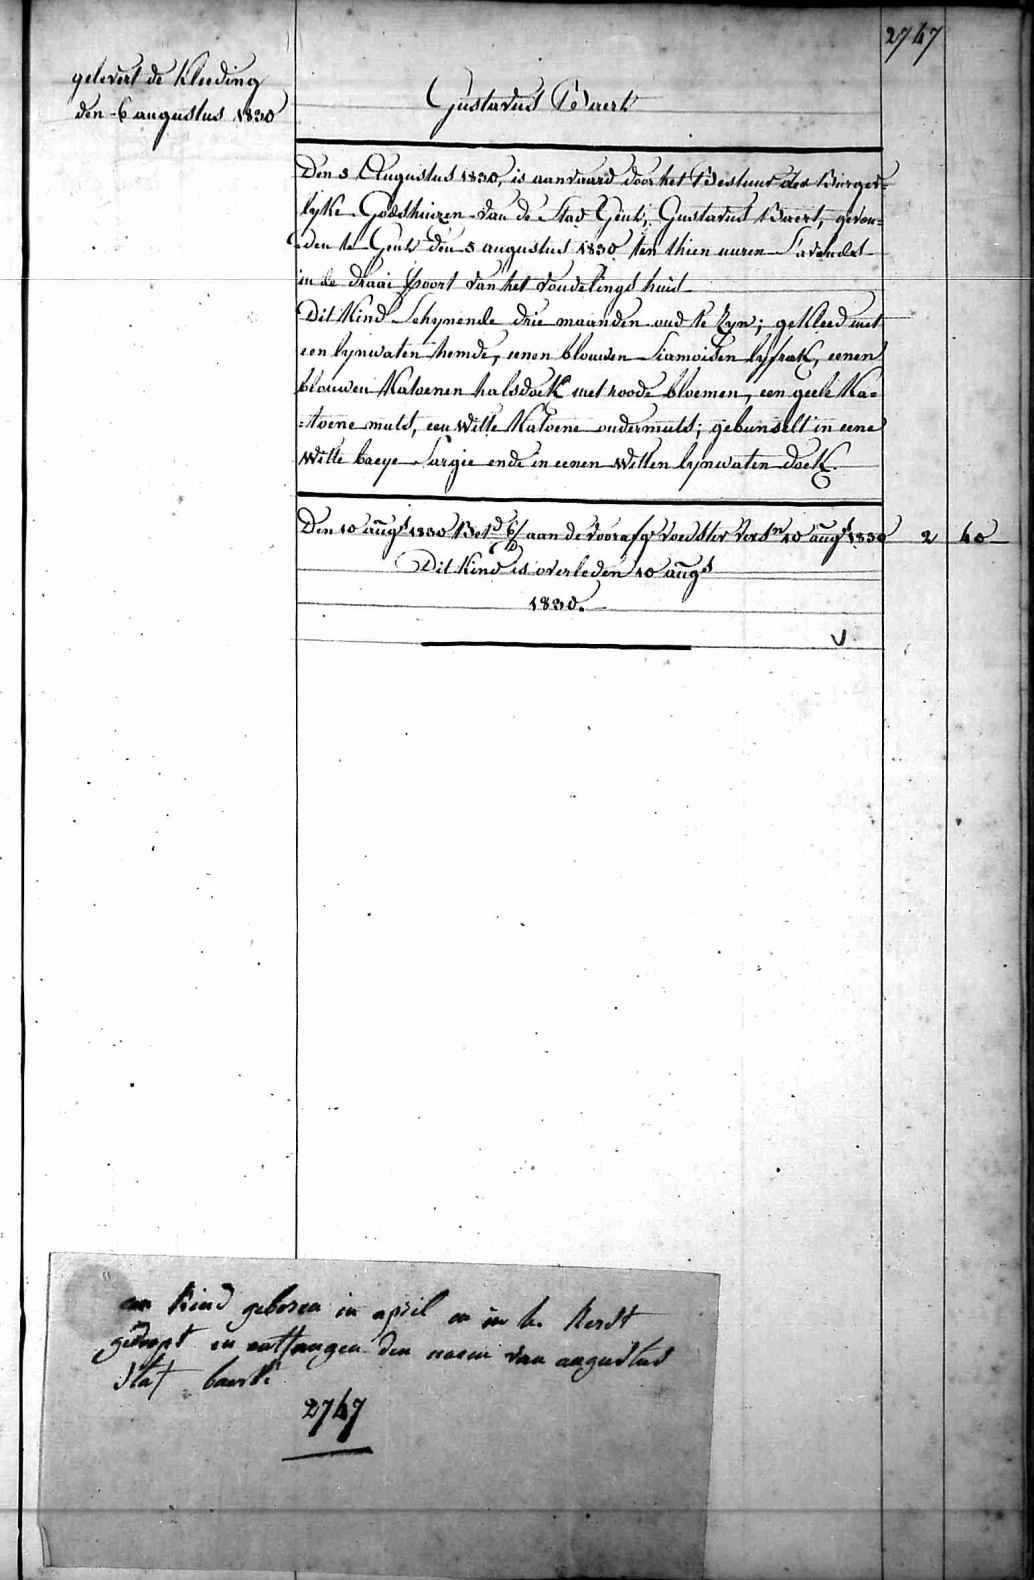 2747
gelevert de Kleeding
den 6 augustus 1830
Gustavus Baert
Den 5 Augustus 1830, is aanvaard door het Bestuur der Burger=
lyke Godshuizen van de Stad Gent, Gustavus Baert, gevon=
den te Gent den 5 augustus 1830 ten thien uuren S'avonds
in de draai poort van het vondelings huis
Dit Kind Schynende drie maanden oud te Zyn; gekleed met
een lynwaten hemde, eenen blouwen Siamoisen lyfrak, eenen
blouwen Katoenen halsdoek met roode bloemen, een geele Ka=
=toene muts, een witte Katoene ondermuts; gebunselt in eene
witte baeye Sargie ende in eenen witten lynwaten doek.
Den 10 augs 1830 Betd aan de voorafge voedster 10 augs 1830 2 40
Dit Kind is overleden 10 augs
1830.
V
een kind geboren in april en in de Kerst
gedoopt en entfangen den naem van augustus
Staf baert
2747